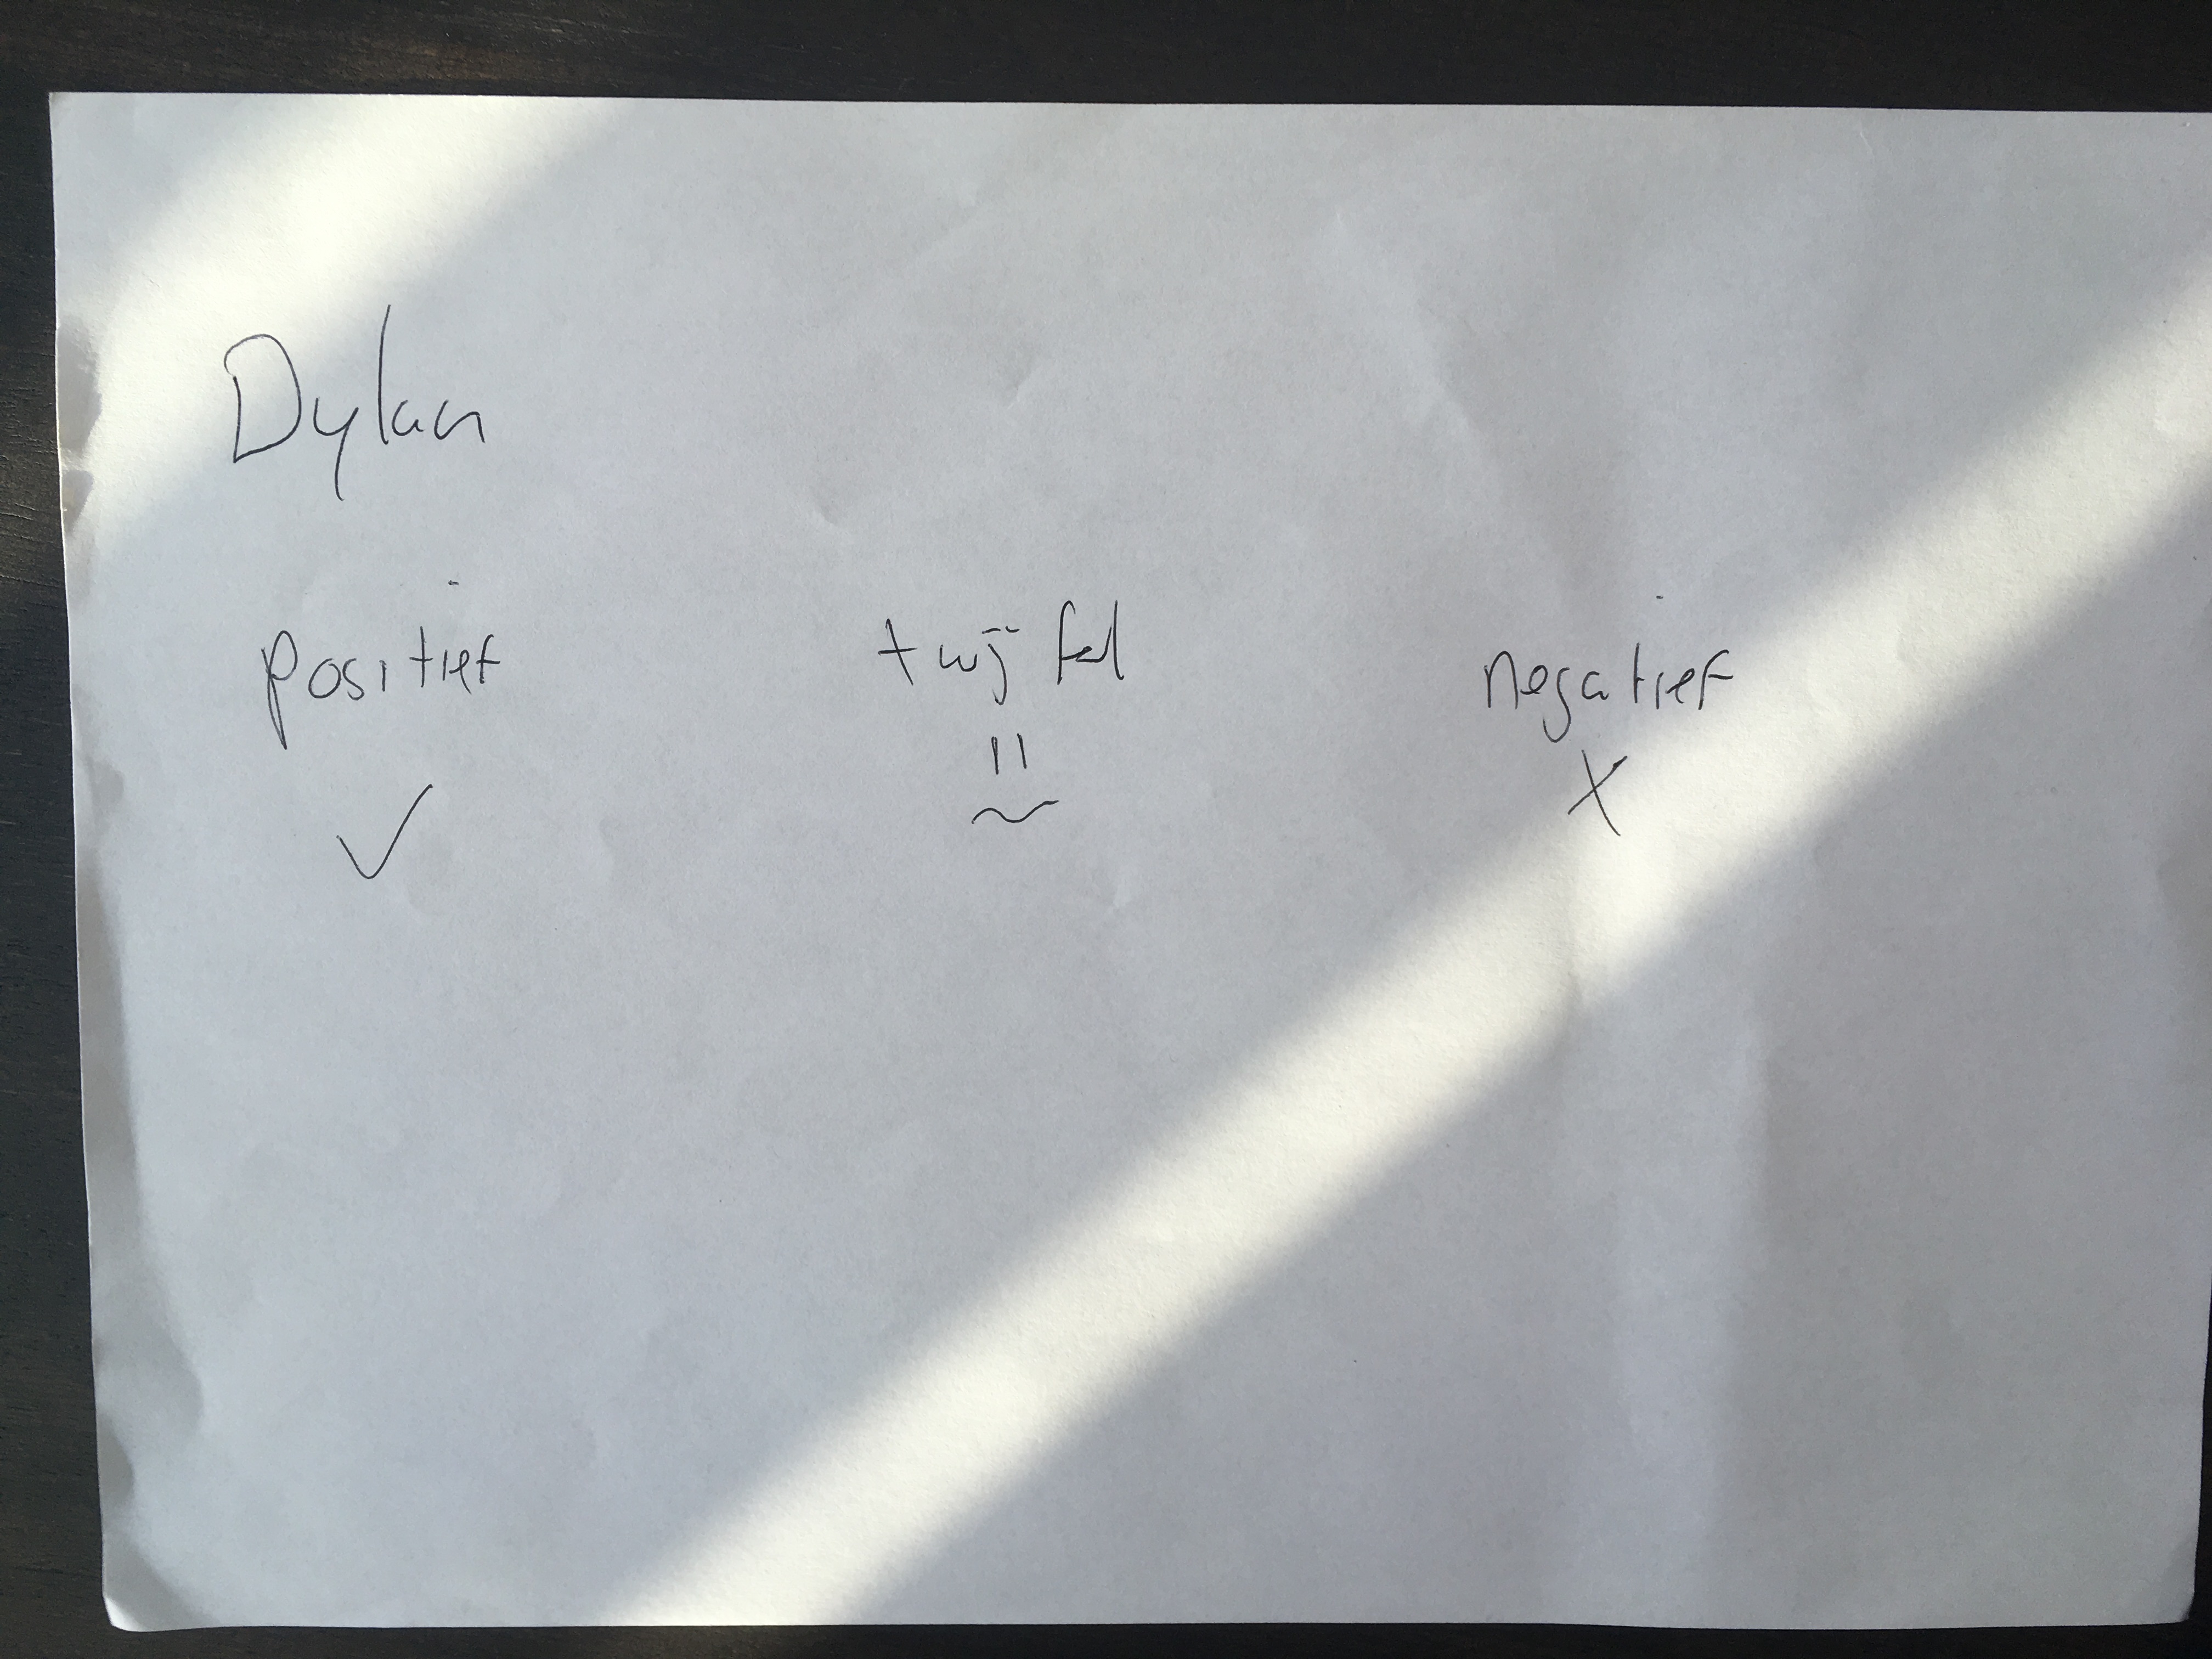 Dylan
positief twijfel negatief
✓ 11 ~ X